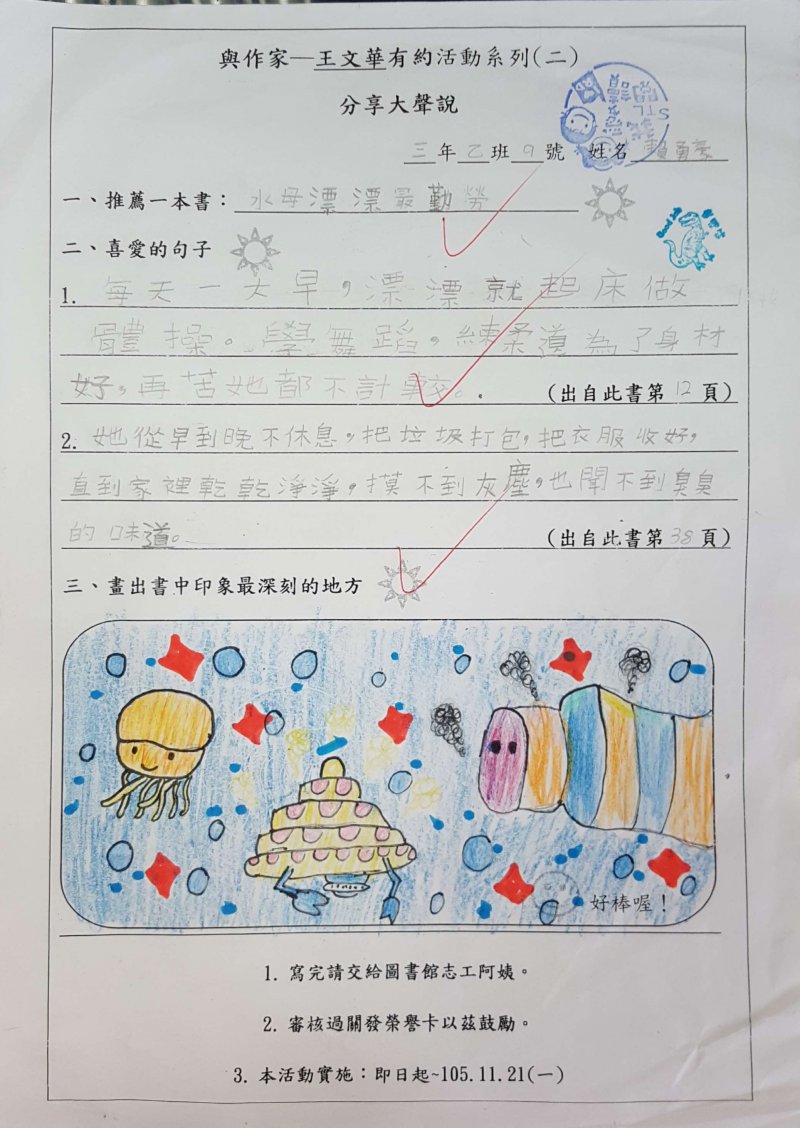 與作家—王文華有約活動系列(二)
分享大聲說
三年乙班9號 姓名賴勇豪
一、推薦一本書：水母漂漂最勤勞
二、喜愛的句子
1. 每天一大早，漂漂就起床做
體操。學舞蹈，練柔道為了身材
好，再苦她都不計較。(出自此書第12頁)
2. 她從早到晚不休息，把垃圾打包，把衣服收好，
直到家裡乾乾淨淨，摸不到灰塵，也聞不到臭臭
的味道。(出自此書第38頁)
三、畫出書中印象最深刻的地方
好棒喔！
1. 寫完請交給圖書館志工阿姨。
2. 審核過關發榮譽卡以茲鼓勵。
3. 本活動實施：即日起~105.11.21(一)